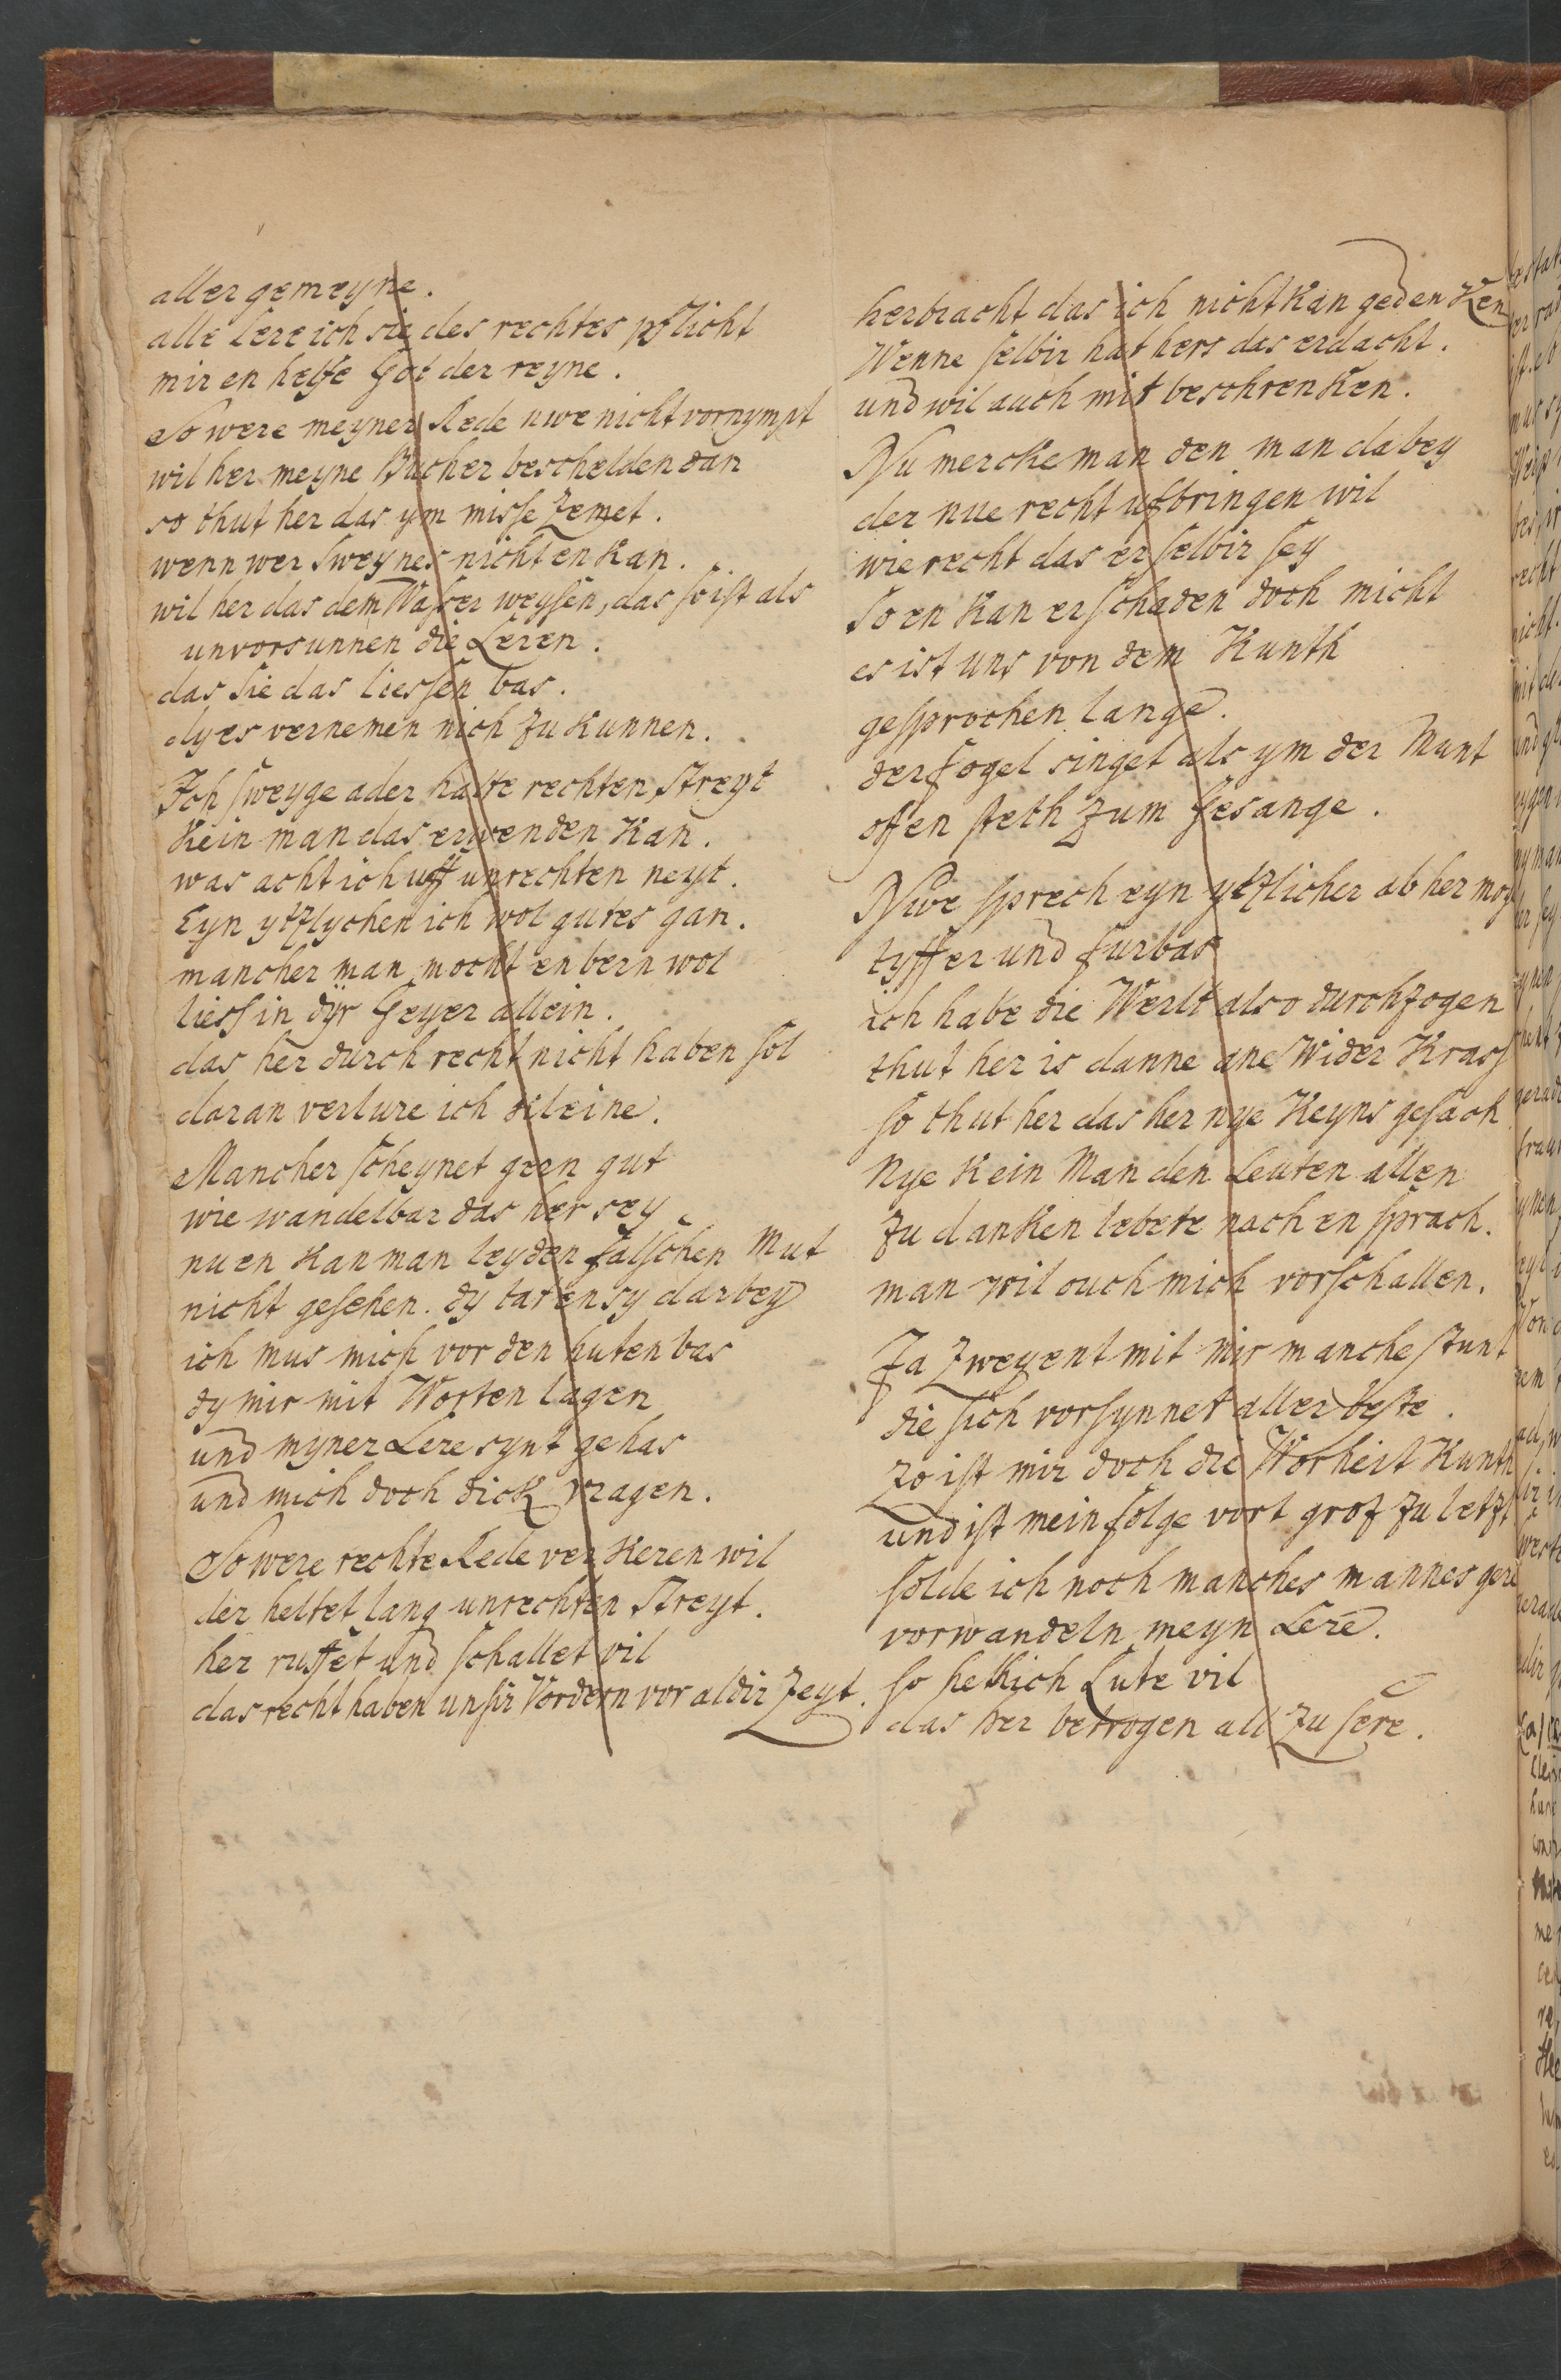 aller gemeyne.
alle Lere ich sie des rechtes pflicht
mir en helfe Got der reyne.
So were meyner Rede nwe nicht vornympt
wil her meyne Bucher beschelden dan
so thut her das ym misse zemet.
wenn wer sweynes nicht en kan.
wil her das dem Wasser weysen, das so ist als
unvorsunnen die Leren.
das sie das liessen bas.
dy es vernemen nich zu kunnen.
Ich sweyge ader halte rechten streyt
Kein man das erwenden kan.
was acht ich uff unrechten neyt.
Eyn ytzlychen ich wol gutes gan.
mancher man mocht enbern wol
liess in dyr Geyer allein.
das her durch recht nicht haben sol
daran verlure ich kleine.
Mancher scheynet gern gut
wie wandelbar das her sey
nu en kan man leyden falschen Mut
nicht gesehen. dy taten sy darbey
ich mus mich vor den huten bas
dy mir mit Worten lagen
und myner Lere synt gehas
und mich doch dick vragen.
So were rechte Rede ver keren wil
der heltet lang unrechten streyt.
her ruffet und schallet vil
das recht haben unsir Vordern vor aldir Zeyt.
herbracht das ich nicht kan gedenken
Wenne selbir hat hers das erdacht.
und wil auch mit beschrenken.
Nu mercke man den man dabey
der nue recht ufbringen wil
wie recht das er selbir sey
so en kan er schaden doch micht
es ist uns von dem Kunth
gesprochen lange.
der fogel singet als ym der Munt
offen steth zum Gesange.
Nwe sprech eyn ytzlicher ab her moge
tyffer und furbas
ich habe die Werlt also durchzogen
thut her is danne ane Wider Krass
so thut her das her nye Keyns gesach
Nye kein Man den Leuten allen
zu danken lebete nach en sprach.
man wil ouch mich vorschallen.
Ja zweyent mit mir manche stunt
die sich vorsynnet aller beste.
zo ist mir doch die Worheit Kunth
und ist mein folge vort groz zu letzt
solde ich noch manches mannes gere
vorwandeln meyn Lere.
so hett ich Lute vil
das her betrogen all zu sere.